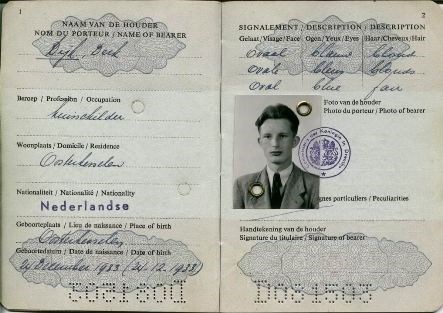 1
NAAM VAN DE HOUDER
NOM DU PORTEUR / NAME OF BEARER
Dijk, Derk
Beroep / Profession / Occupation
huisschilder
Woonplaats / Domicile / Residence
Oosterhesselen
Nationaliteit / Nationalité / Nationality
Nederlandse
Geboorteplaats / Lieu de naissance / Place of birth
Oosterhesselen
Geboortedatum / Date de naissance / Date of birth
24 December 1933 (24-12-1933)
2
SIGNALEMENT / DESCRIPTION / DESCRIPTION
Gelaat/Visage/Face Ogen/Yeux/Eyes Haar/Cheveux/Hair
Ovaal blauw blond
Ovale bleus blonds
Oval blue fair
Foto van de houder
Photo du porteur / Photo of bearer
gnes particuliers / Peculiarities
Handtekening van de houder
Signature du titulaire / Signature of bearer